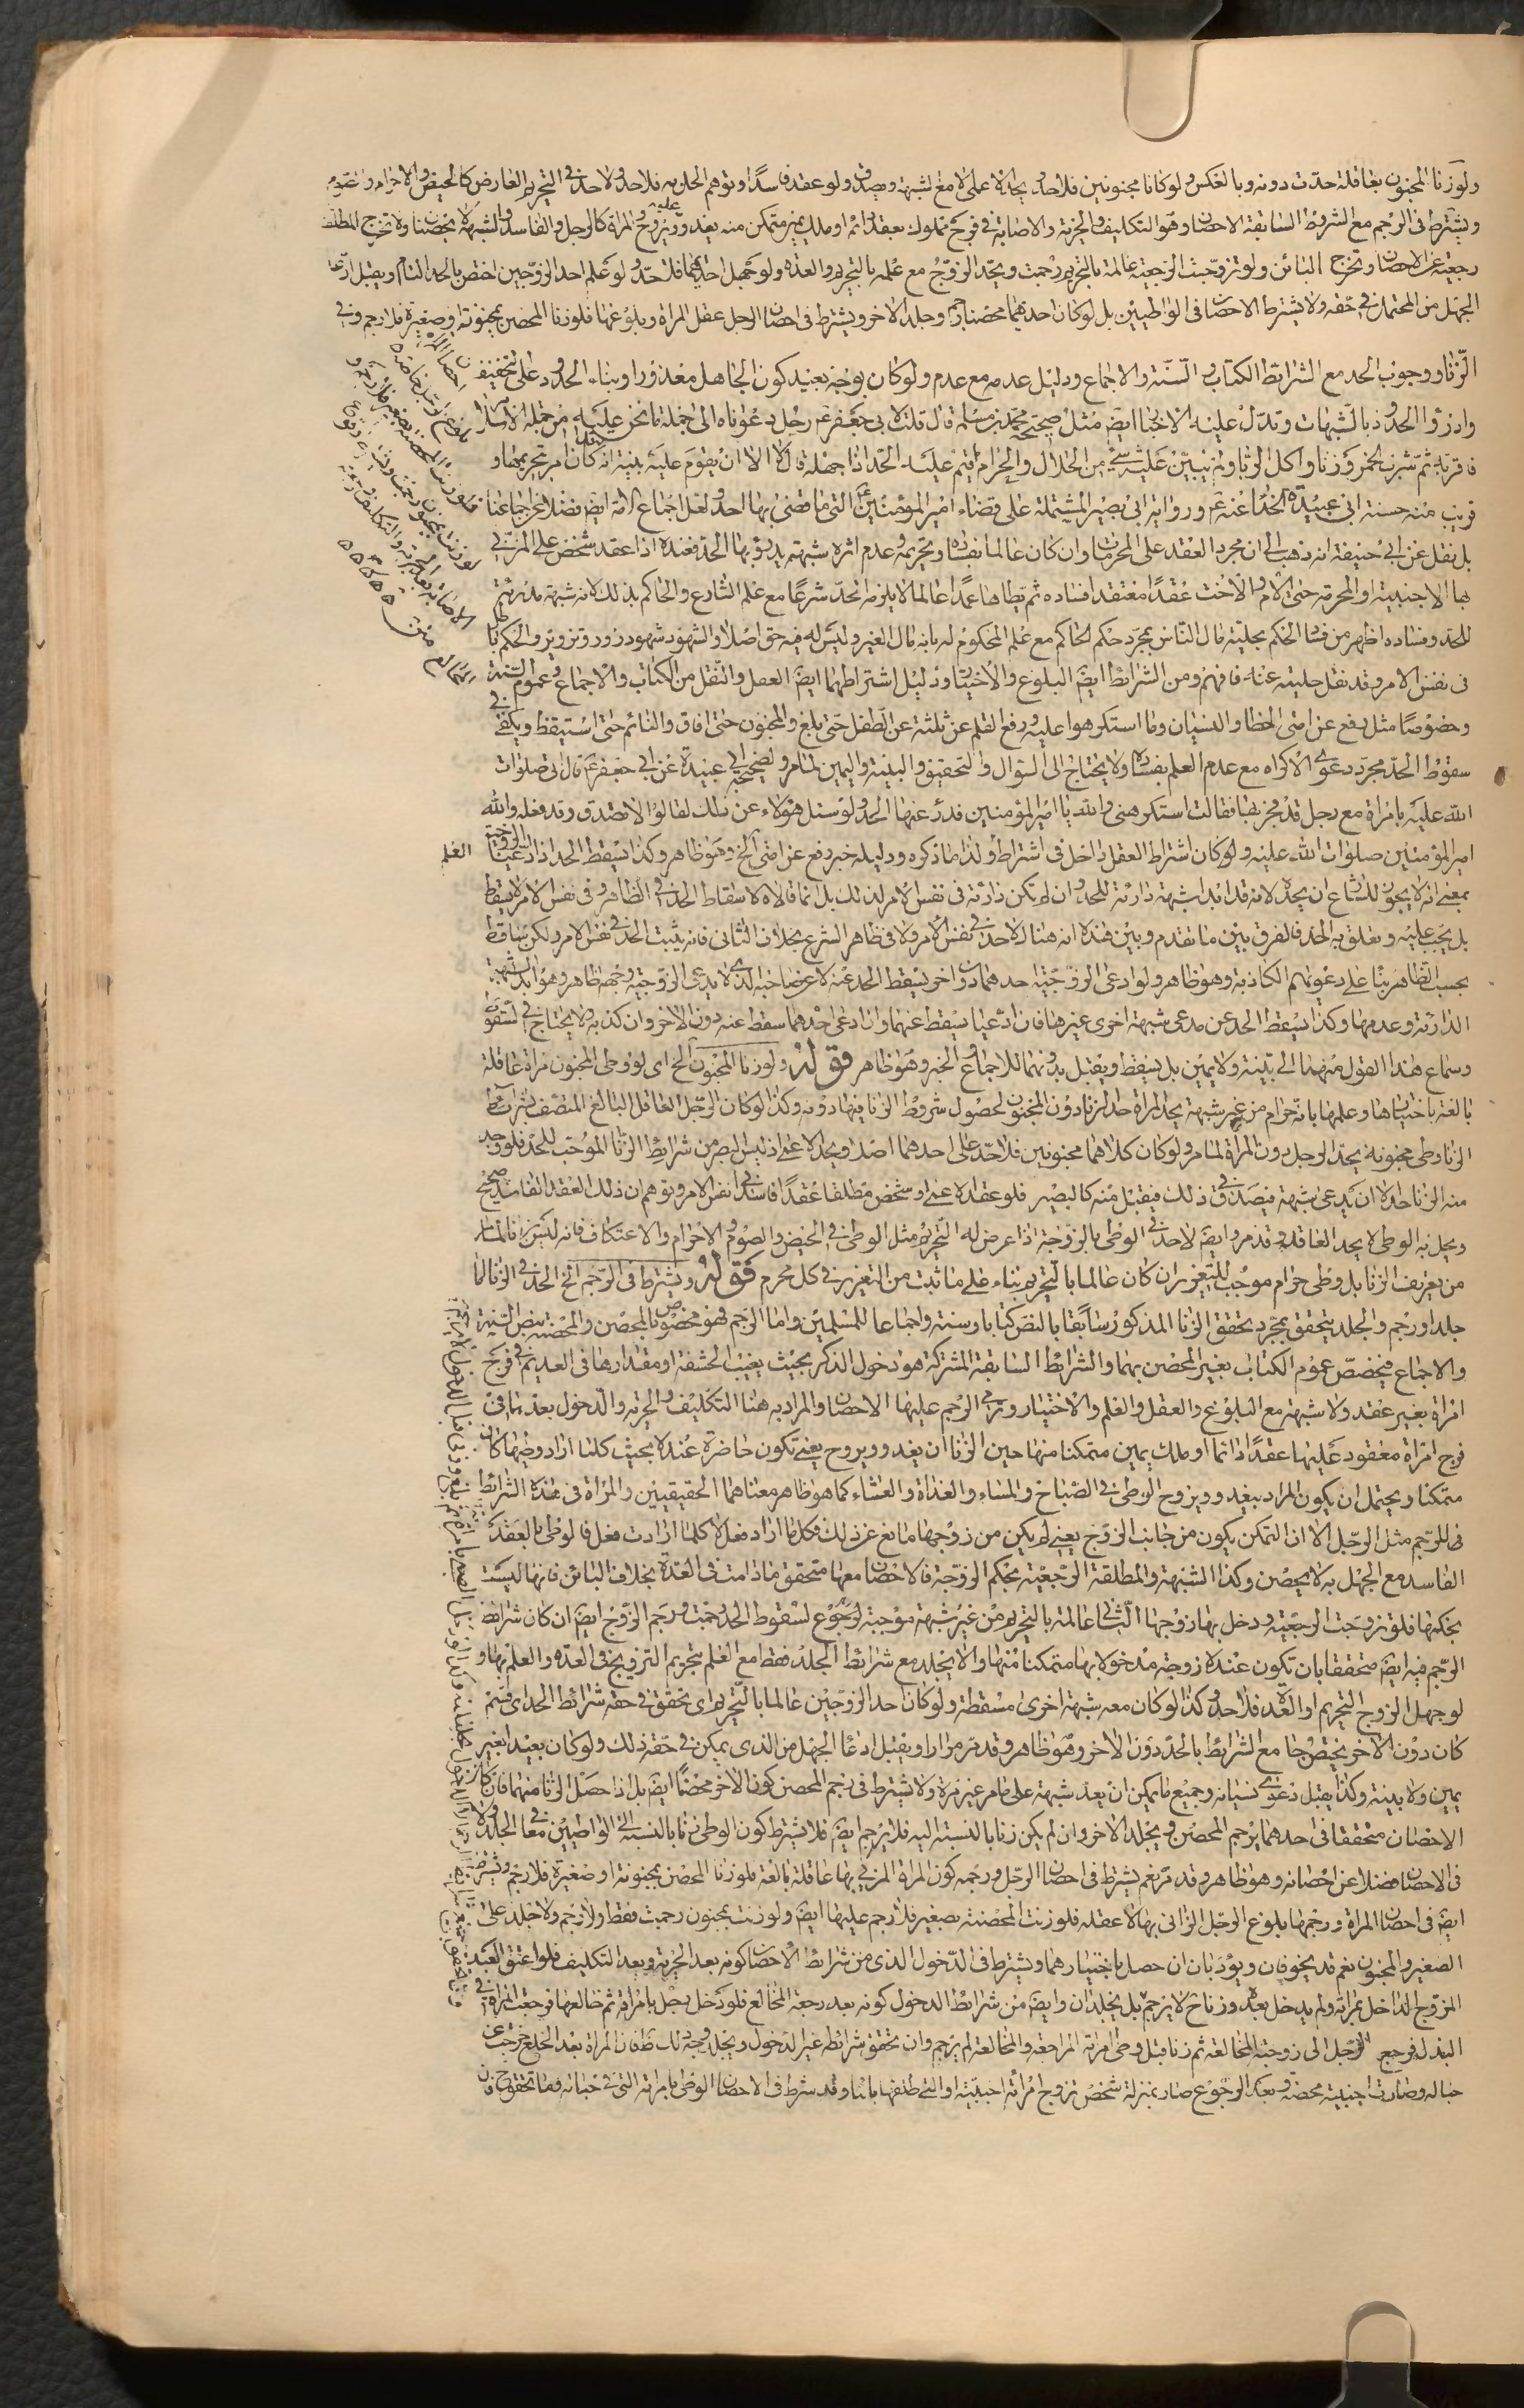 ولو زنا المجنون بعاقلة حدت دونه وبالعكس ولو كانا مجنونين فلا حد ويحد الاعمى لا مع شبهة ويصدق ولو عقد فاسدا وتوهم الحل به فلا حد ولا حد في التحريم العارض كالحيض والاحرام والصوم
ويشترط في الرجم مع الشروط السابقة الاحصان وهو التكليف والحرية والاصابة في فرج مملوك بعقد دائم او ملك يمين متمكن منه يغدو عليه ويروح والمراة كالرجل والفاسد والشبهة لا يحصنان ولا تخرج المطلقة
رجعية عن الاحصان وتخرج البائن ولو تزوجت الرجعية عالمة بالتحريم رجمت ويحد الزوج مع علمه بالتحريم والعدة ولو جهل احدهما فلا حد ولو علم احد الزوجين اختص بالحد التام ويقبل ادعا
الجهل من المحتمل في حقه ولا يشترط الاحصان في الواطيين بل لو كان احدهما محصنا رجم وجلد الاخر ويشترط في احصان الرجل عقل المراة وبلوغها فلو زنا المحصن بمجنونة او صغيرة فلا رجم وفي
الزنا ووجوب الحد مع الشرائط الكتاب والسنة والاجماع ودليل عدمه مع عدم ولو كان بوجه بعيد كون الجاهل معذورا وبناء الحدود على التخفيف
وادرؤا الحدود بالشبهات وتدل عليه الاخبار ايضا مثل صحيحة محمد بن مسلم قال قلت لابي جعفر ع رجل دعوناه الى جملة ما نحن عليه من جملة الاسلام
فاقر به ثم شرب الخمر وزنا واكل الربا ولم يتبين عليه شئ من الحلال والحرام اقيم عليه الحد اذا جهله قال لا الا ان يقوم عليه بينة انه كان اقر بتحريمها و
قريب منه حسنة ابي عبيدة الحذاء عنه ع ورواية ابي بصير المشتملة على قضاء امير المؤمنين ع التي ما قضى بها احد ولعل اجماع الامة ايضا فضلا عن اجماعنا
بل نقل عن ابي حنيفة انه ذهب الى ان مجرد العقد على المحرمات وان كان عالما بفساده وتحريمه وعدم اثره شبهة يدرؤ بها الحد فعنده اذا عقد شخص على المزني
بها الاجنبية او المحرمة حتى الام والاخت عقدا معتقدا فساده ثم يطاها عمدا عالما لا يلزمه الحد شرعا مع علم الشارع والحاكم بذلك لانه شبهة مدرئة
للحد وفساده اظهر من فساد الحكم بحلية مال الناس بمجرد حكم الحاكم مع علم المحكوم له بانه مال الغير وليس له فيه حق اصلا والشهود شهود زور وتزوير والحكم باطل
في نفس الامر وقد نقل حليته عنه فافهم ومن الشرائط ايضا البلوغ والاختيار ودليل اشتراطهما ايضا العقل والنقل من الكتاب والاجماع وعموم السنة
وخصوصا مثل رفع عن امتي الخطا والنسيان وما استكرهوا عليه ورفع القلم عن ثلثة عن الطفل حتى يبلغ والمجنون حتى افاق والنائم حتى استيقظ ويكفي في
سقوط الحد مجرد دعوى الاكراه مع عدم العلم بفساده ولا يحتاج الى السؤال والتحقيق والبينة واليمين لما مر ولصحيحة ابي عبيدة عن ابي جعفر ع قال اتي صلوات
الله عليه بامراة مع رجل قد فجر بها فقالت استكرهني والله يا امير المؤمنين فدرء عنها الحد ولو سئل هؤلاء عن ذلك لقالوا لا تصدق وقد فعله والله
امير المؤمنين صلوات الله عليه ولو كان اشتراط العقل داخل في اشتراط ولذا ما ذكره ودليله خبر رفع عن امتي الخ وهو ظاهر وكذا يسقط الحد اذا ادعيا الزوجية
بمعنى انه لا يجوز للشارع ان يحده لانه قد ابدا شبهة دارئة للحد وان لم تكن دارئة في نفس الامر لذلك بل انما قالاه لاسقاط الحد في الظاهر وفي نفس الامر لا يسقط
بل يجب عليه ويعلق به الحد فالفرق بين ما تقدم وبين هذه انه هنا لا حد في نفس الامر ولا في ظاهر الشرع بخلاف الثاني فانه يثبت الحد في نفس الامر ولكن ساقط
بحسب الظاهر بناء على دعوتهم الكاذبة وهو ظاهر ولو ادعى الزوجية احدهما دون اخر يسقط الحد عنه لا عن صاحبه الذي لا يدعي الزوجية وجهه ظاهر وهو ابداء الشبهة
الدارئة وعدمها وكذا يسقط الحد عن مدعي شبهة اخرى غيرها فان ادعيا يسقط عنهما وان ادعى احدهما سقط عنه دون الاخر وان كذبه ولا يحتاج في السقوط
وسماع هذا القول منهما الى بينة ولا يمين بل يسقط ويقبل بدونهما للاجماع والخبر وهو ظاهر قوله ولو زنا المجنون الخ اى لو وطى المجنون امراة عاقلة
بالغة باختيارها وعلمها بانه حرام من غير شبهة يحد المراة حد الزنا دون المجنون لحصول شروط الزنا فيها دونه وكذا لو كان الرجل العاقل البالغ المتصف بشرائط
الزنا وطى مجنونة يحد الرجل دون المراة لما مر ولو كان كلاهما مجنونين فلا حد على احدهما اصلا ويحد الاعمى اذ ليس البصر من شرائط الزنا الموجب للحد فلو وجد
منه الزنا حد الا ان يدعي شبهة فيصدق في ذلك فيقبل منه كالبصير فلو عقد الاعمى او شخص مطلقا عقدا فاسدا في نفس الامر وتوهم ان ذلك العقد الفاسد صحيح
ويحل به الوطى لا يحد العاقد وقد مر وايضا لا حد في الوطى بالزوجة اذا عرض له التحريم مثل الوطى في الحيض والصوم والاحرام والاعتكاف فانه ليس زنا لما مر
من تعريف الزنا بل وطى حرام موجب للتعزير ان كان عالما بالتحريم بناء على ما ثبت من التعزير في كل محرم قوله ويشترط في الرجم الخ الحد في الزنا اما
جلد او رجم والجلد يتحقق بمجرد تحقق الزنا المذكور سابقا بالنص كتابا وسنة واجماعا للمسلمين واما الرجم فهو مخصوص بالمحصن والمحصنة بنص السنة
والاجماع فيخصص عموم الكتاب بغير المحصن بهما والشرائط السابقة المشتركة هو دخول الذكر بحيث يغيب الحشفة او مقدارها في العديم في فرج
امراة بغير عقد ولا شبهة مع البلوغ والعقل والعلم والاختيار ويزيد في الرجم عليها الاحصان والمراد به هنا التكليف والحرية والدخول بعدهما في
فرج امراة معقود عليها عقدا دائما او ملك يمين متمكنا منها حين الزنا ان يغدو ويروح يعني تكون حاضرة عنده بحيث كلما اراد وطيها كان
متمكنا ويحتمل ان يكون المراد بيغدو ويروح الوطى في الصباح والمساء والغداة والعشاء كما هو ظاهر معناهما الحقيقيين والمراة في هذه الشرائط
في الرجم مثل الرجل الا ان التمكن يكون من جانب الزوج يعني لم يكن من زوجها مانع عن ذلك فكل ما اراد فعل لا كلما ارادت فعل فالوطى بالعقد
الفاسد مع الجهل به لا يحصن وكذا الشبهة والمطلقة الرجعية بحكم الزوجة فالاحصان معها متحقق ما دامت في العدة بخلاف البائن فانها ليست
بحكمها فلو تزوجت الرجعية ودخل بها زوجها الثاني عالمة بالتحريم من غير شبهة موجبة لسقوط الحد رجمت ورجم الزوج ايضا ان كان شرائط
الرجم فيه ايضا متحققا بان تكون عنده زوجة مدخولا بها متمكنا منها والا يجلد مع شرائط الجلد فقط مع العلم بتحريم التزويج في العدة والعلم بها و
لو جهل الزوج التحريم او العدة فلا حد وكذا لو كان معه شبهة اخرى مسقطة ولو كان احد الزوجين عالما بالتحريم اى تحقق في حقه شرائط الحد اى قسم
كان دون الاخر يختص هنا مع الشرائط بالحد دون الاخر وهو ظاهر وقد مر مرارا ويقبل ادعا الجهل من الذى يمكن في حقه ذلك ولو كان بعيدا بغير
يمين ولا بينة وكذا يقبل دعوى نسيانه وجميع ما يمكن ان يعد شبهة على ما مر غير مرة ولا يشترط في رجم المحصن كون الاخر محصنا ايضا بل اذا حصل الزنا منهما فان كان
الاحصان متحققا في احدهما يرجم المحصن ويجلد الاخر وان لم يكن زنا بالنسبة اليه فلا يرجم ايضا فلا يشترط كون الوطى زنا بالنسبة الى الواطيين معا في الجلد ولا
في الاحصان فضلا عن احصانه وهو ظاهر وقد مر نعم يشترط في احصان الرجل ورجمه كون المراة المزني بها عاقلة بالغة فلو زنا المحصن بمجنونة او صغيرة فلا رجم ويشترط
ايضا في احصان المراة ورجمها بلوغ الرجل الزاني بها لا عقله فلو زنت المحصنة بصغير فلا رجم عليها ايضا ولو زنت بمجنون رجمت فقط ولا رجم ولا جلد على
الصغير والمجنون نعم قد يخوفان ويؤدبان ان حصل باختيارهما ويشترط في الدخول الذى من شرائط الاحصان كونه بعد الحرية وبعد التكليف فلو اعتق العبد
المزوج الداخل بامراته ولم يدخل بعده وزنا ح لا يرجم بل يجلدان وايضا من شرائط الدخول كونه بعد رجعة المخالع فلو دخل رجل بامراته ثم خالعها فرجعت المراة في
البذل فرجع الرجل الى زوجته المخالعة ثم زنا قبل وطى امراته المراجعة والمخالعة لم يرجم وان تحقق شرائطه غير الدخول ويجلد وجه ذلك ظ فان المراة بعد الخلع خرجت عن
حباله وصارت اجنبية محضة وبعد الرجوع صار بمنزلة شخص تزوج امراة اجنبية او التي طلقها بائنا وقد شرط في الاحصان الوطى بامراته التي في حباله وما تحقق ح فان
العلم